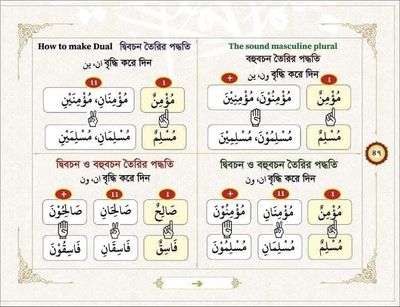 How to make Dual দ্বিবচন তৈরির পদ্ধতি
ان، ين বৃদ্ধি করে দিন
11 1
مُؤْمِنٌ مُؤْمِنَانِ، مُؤْمِنَيْنِ
مُسْلِمٌ مُسْلِمَانِ، مُسْلِمَيْنِ
The sound masculine plural
বহুবচন তৈরির পদ্ধতি
ون، ين বৃদ্ধি করে দিন
+ 1
مُؤْمِنٌ مُؤْمِنُوْنَ، مُؤْمِنِيْنَ
مُسْلِمٌ مُسْلِمُوْنَ، مُسْلِمِيْنَ
দ্বিবচন ও বহুবচন তৈরির পদ্ধতি
ان، ون বৃদ্ধি করে দিন
+ 11 1
صَالِحٌ صَالِحَانِ صَالِحُوْنَ
فَاسِقٌ فَاسِقَانِ فَاسِقُوْنَ
দ্বিবচন ও বহুবচন তৈরির পদ্ধতি
ان، ون বৃদ্ধি করে দিন
+ 11 1
مُؤْمِنٌ مُؤْمِنَانِ مُؤْمِنُوْنَ
مُسْلِمٌ مُسْلِمَانِ مُسْلِمُوْنَ
৪৯